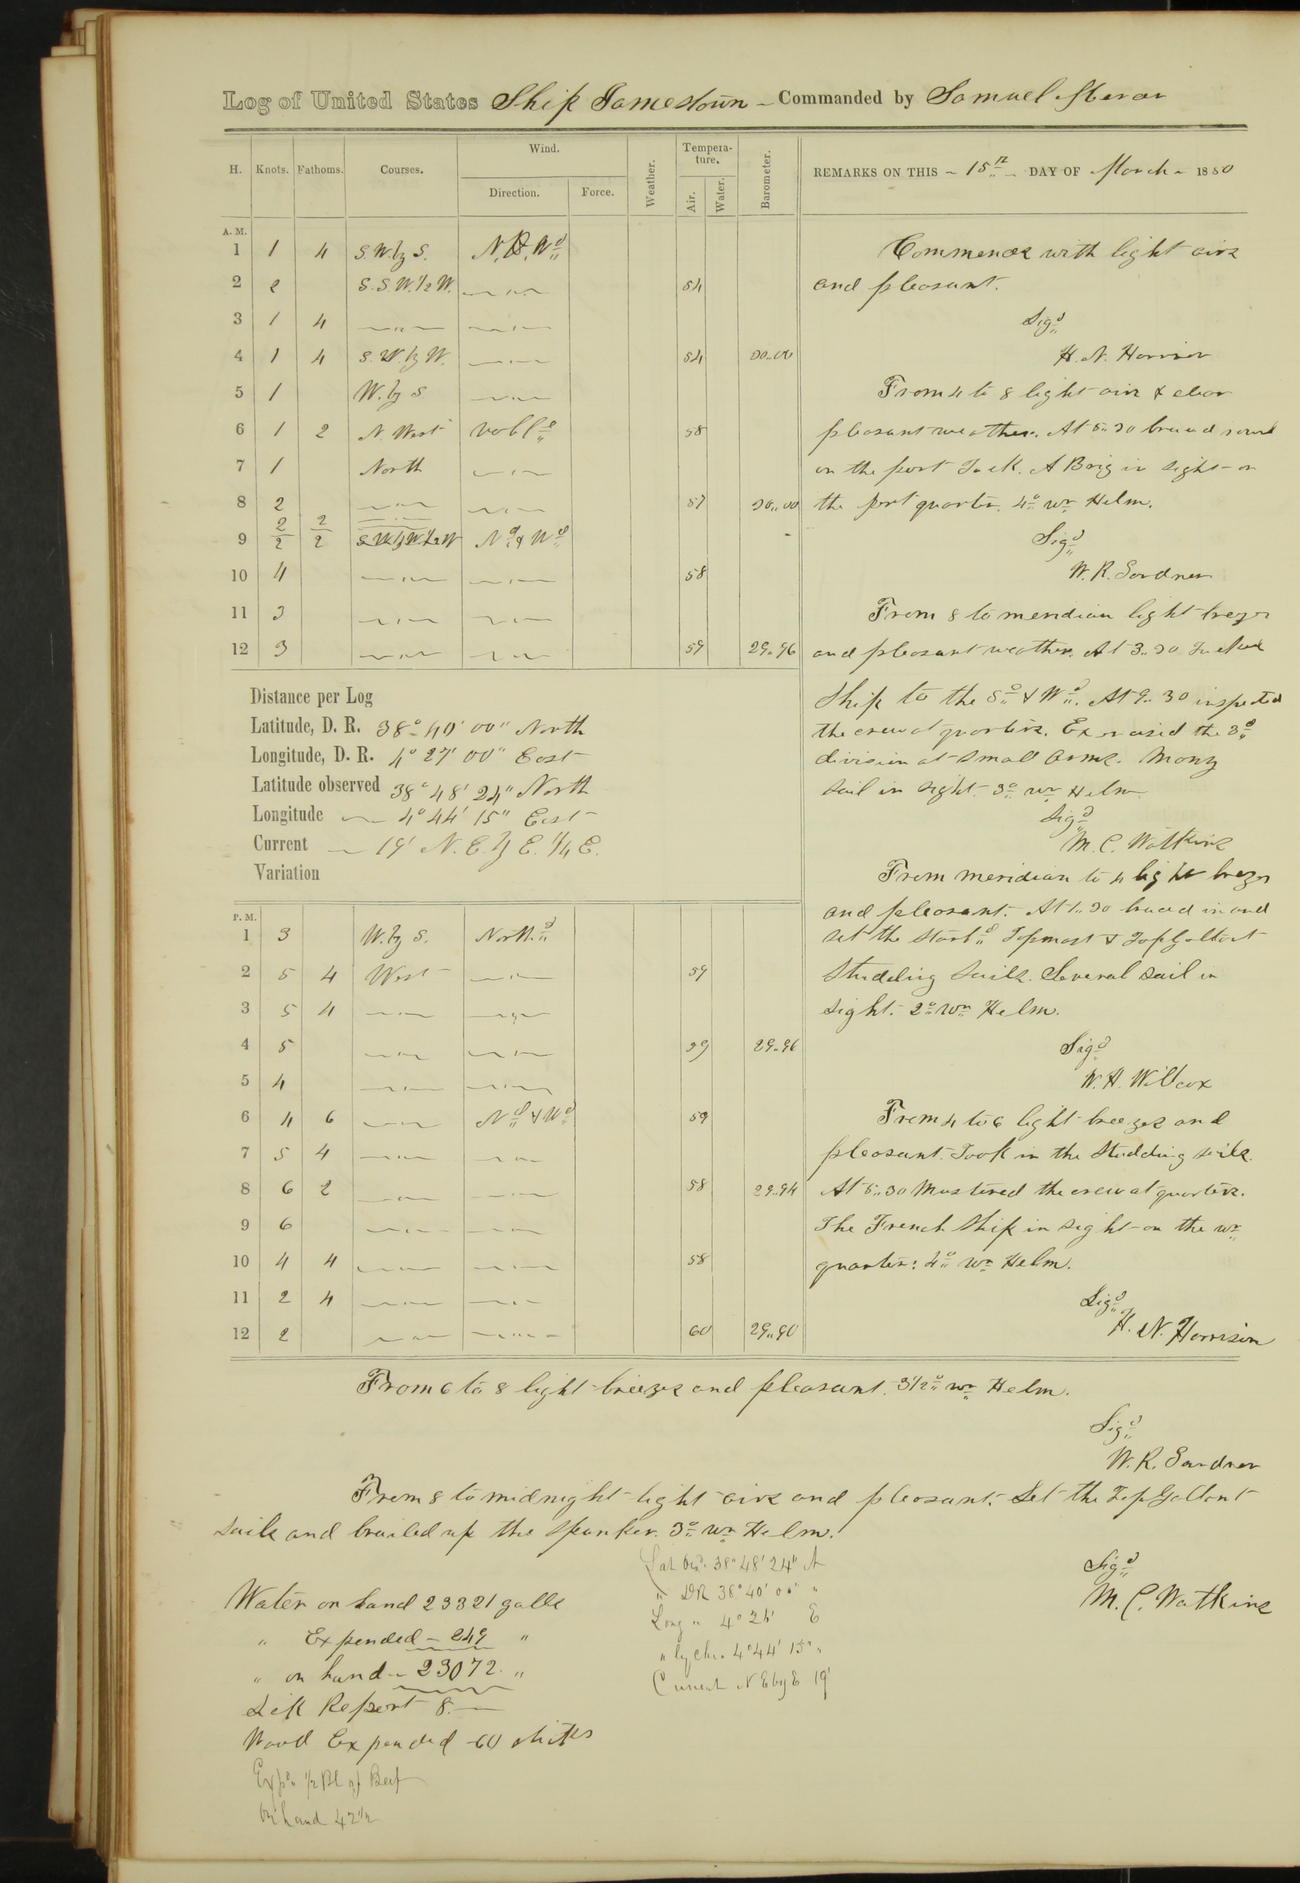 Log of United States Ship Jamestown – Commanded by Samuel Mercer
H. Knots. Fathoms. Courses. Wind. Direction. Force. Weather. Temperature. Air. Water. Barometer.
REMARKS ON THIS – 15th – DAY OF March – 1850
A. M.
1 1 4 S.W. by S. N. & Wd
2 2 S.S.W. 1/2 W. 〃 54
3 1 4 〃 〃
4 1 4 S.W. by W. 〃 54 30..00
5 1 W. by S 〃
6 1 2 N. West vabled 58
7 1 North 〃
8 2 〃 〃 57 30..00
9 2/2 2/2 S.W. by W. 1/2 W Nd & Wd
10 4 〃 〃 58
11 3 〃 〃
12 3 〃 〃 59 29..96
Commences with light airs
and pleasant.
Sigd
H. N. Harrison
From 4 to 8 light airs & clear
pleasant weather. At 5..30 braced round
on the port Tack. A Brig in sight on
the port quarter. 4o wr Helm.
Sigd
W. R. Gardner
From 8 to meridian light breezes
and pleasant weather. At 8..30 Tacked
Ship to the Sd & Wd. At 9..30 inspected
the crew at quarters. Exercised the 3d
division at small arms. Many
sail in sight. 3o wr Helm.
Sigd
M. C. Watkins
Distance per Log
Latitude, D. R. 38° 40' 00" North
Longitude, D. R. 4° 27' 00" East
Latitude observed 38° 48' 24" North
Longitude 4° 44' 15" East
Current 19' N.E. by E. 1/4 E.
Variation
P. M.
1 3 W. by S. North.d
2 5 4 West 〃 59
3 5 4 〃 〃
4 5 〃 〃 59 29..96
5 4 〃 〃
6 4 6 〃 Nd & Wd 59
7 5 4 〃 〃
8 6 2 〃 〃 58 29..94
9 6 〃 〃
10 4 4 〃 〃 58
11 2 4 〃 〃
12 2 〃 〃 60 29..90
From meridian to 4 light breezes
and pleasant. At 1..30 braced in and
set the Starbd Topmast & TopGallant
Studding Sails. Several sail in
sight. 2o wr Helm.
Sigd
W. H. Willcox
From 4 to 6 light breezes and
pleasant. Took in the Studding sails.
At 5..30 Mustered the crew at quarters.
The French Ship in sight on the wr
quarter: 4o wr Helm.
Sigd
H. N. Harrison
From 6 to 8 light breezes and pleasant. 3 1/2o wr Helm.
Sigd
W. R. Gardner
From 8 to midnight light airs and pleasant. Set the TopGallant
sails and brailed up the Spanker. 3o wr Helm.
Sigd
M. C. Watkins
Lat Obs. 38° 48' 24" N
" DR 38° 40' 00" "
Long " 4° 27' E
" by chr. 4° 44' 15" "
Current N E by E 19'
Water on hand 23321 galls
" Expended – 249 "
" on hand – 23072 "
Sick Report 8.
Wood Expended 60 sticks
Expd 1/2 Bl of Beef
On hand 42 1/2